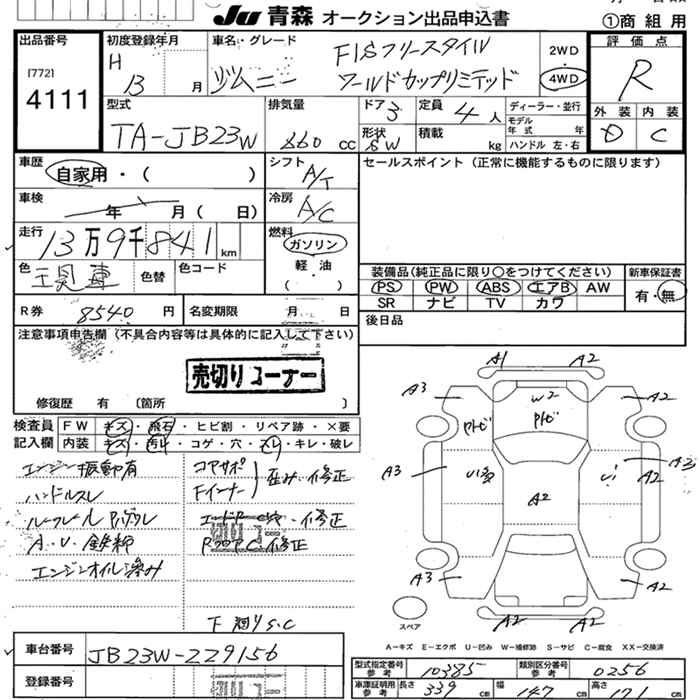 JU 青森 オークション出品申込書
①商 組 用
出品番号
[772]
4111
初度登録年月
H 13 月
車名・グレード
ジムニー
FISフリースタイル
ワールドカップリミテッド
2WD
・
4WD
評価点
R
外装 内装
D C
型式
TA-JB23W
排気量
660 cc
ドア 3
形状 SW
定員 4 人
積載 kg
ディーラー・並行
モデル年式 年
ハンドル 左・右
車歴
自家用・( )
シフト
A/T
セールスポイント(正常に機能するものに限ります)
車検
年 月( 日)
冷房
A/C
走行
13万9千841km
燃料
ガソリン
軽油
( )
色
色替
色コード
装備品(純正品に限り〇をつけてください)
新車保証書
PS PW ABS エアB AW
SR ナビ TV カワ
有・無
R券 8540 円
名変期限 月 日
後日品
注意事項申告欄(不具合内容等は具体的に記入して下さい)
売切りコーナー
修復歴 有 〔箇所 〕
検査員
記入欄
FW キズ・飛石・ヒビ割・リペア跡・×要
内装 キズ・汚れ・コゲ・穴・スレ・キレ・破レ
エンジン振動有
ハンドルスレ
A.V.
エンジンオイル滲み
コアサポ
Fインナー
歪み・修正
修正
修正
下廻りS.C
A1 A2
A3 W2 A2
A3 A2 A2 A3
A3 A2
A2 A2
スペア
A-キズ E-エクボ U-凹み W-補修跡 S-サビ C-腐食 XX-交換済
車台番号
JB23W-229156
登録番号
型式指定番号 参考 10385
類別区分番号 参考 0256
車庫証明用 参考 長さ 339 cm 幅 147 cm 高さ 171 cm